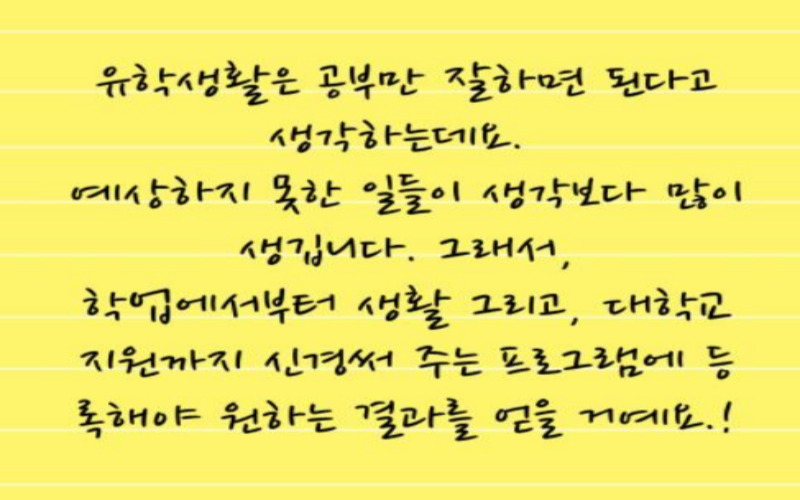 유학생활은 공부만 잘하면 된다고
생각하는데요.
예상하지 못한 일들이 생각보다 많이
생깁니다. 그래서,
학업에서부터 생활 그리고, 대학교
지원까지 신경써 주는 프로그램에 등
록해야 원하는 결과를 얻을 거예요.!